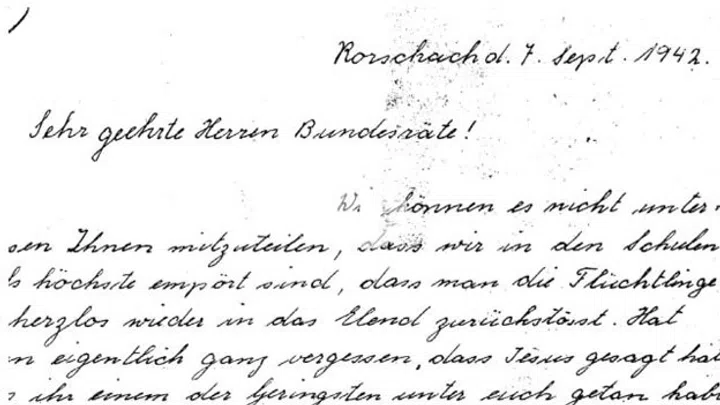 Rorschach d. 7. Sept. 1942.
Sehr geehrte Herren Bundesräte!
Wi können es nicht unter-
sen Ihnen mitzuteilen, dass wir in den Schulen
s höchste empört sind, dass man die Flüchtlinge
herzlos wieder in das Elend zurückstösst. Hat
n eigentlich ganz vergessen, dass Jesus gesagt hat
s ihr einem der Geringsten unter euch getan habt